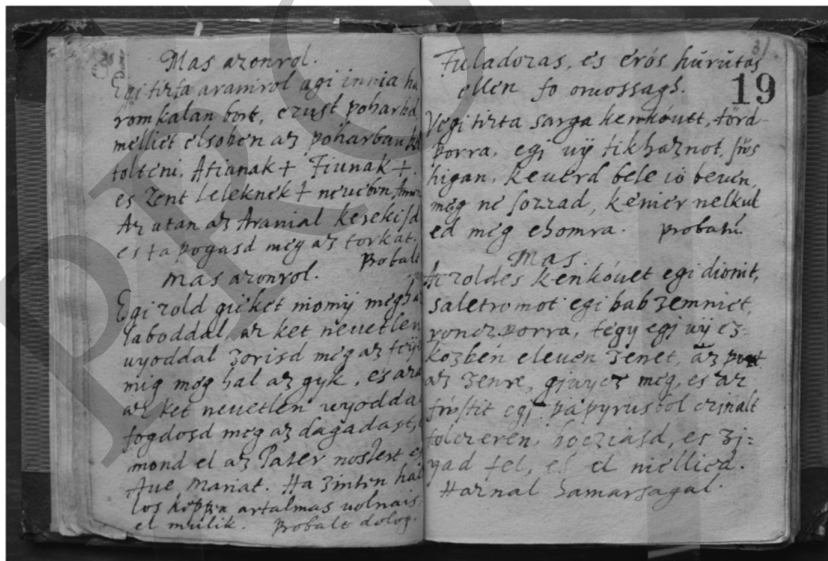 Mas azonrol.
Egi tizta aranirol agi innia ha
rom kalan bort, ezust pohárbol
melliet elsoben az pohárban
tolteni, Atianak + Fiunak +
es Zent Leleknek + neueben,
Az utan az Aranial kerekisd
es tapogasd meg az torkat.
Probalt
Mas azonrol.
Egi zold gieket niomij meg
laboddal, az ket neuetlen
uyoddal zorisd meg az feiet
mig meg hal az gyk, es az
az ket neuetlen uyoddal
fogdosd meg az dagadast,
mond el az Pater nostert es
Aue Mariat. Ha zinten hal
los keppen artalmas uolnais
el mulik. Probalt dolog.
31
19
Fuladozas, es erös hürütös
ellen fo oruossagh.
Vegi tizta sarga kenköuet, törd
porra, egi uÿ tik haznot,
higan, keuerd bele iö beuen,
meg ne sozzad, kenier nelkul
ed meg ehomra. probatum.
Mas.
Az zoldes kenköuet egi dionit,
saletromot egi babzemniet,
roncz porra, tegy egj uÿ ez=
közben eleuen zenet, az port
az zenre, gjuycz meg, es az
füstit egj papyrusbol czinalt
tolczeren, boczasd, es zj=
uad fel, es el niellied.
Haznal hamarsagul.